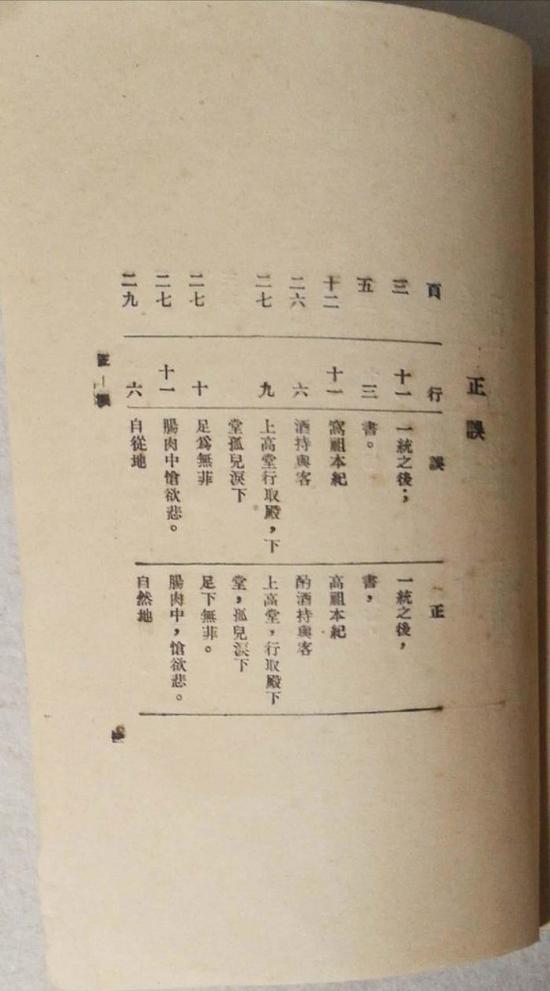 正誤
頁 行 誤 正
三 十一 一統之後； 一統之後，
五 三 書。 書，
十二 十一 窩祖本紀 高祖本紀
二六 六 酒持與客 酌酒持與客
二七 九 上高堂行取殿，下 上高堂，行取殿下
堂孤兒淚下 堂，孤兒淚下
二七 十 足爲無菲 足下無菲。
二七 十一 腸肉中愴欲悲。 腸肉中，愴欲悲。
二九 六 自從地 自然地
正誤